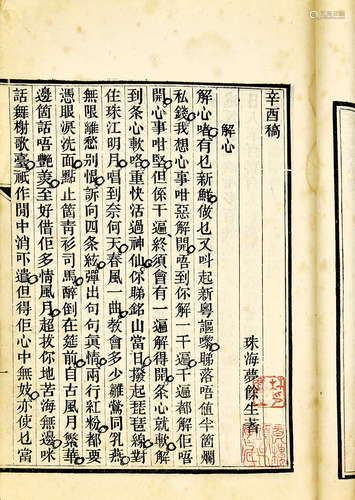 辛酉稿
解心
珠海夢餘生著
解心唔有乜新鮮做乜又叫起新粵謳嚟睇落唔值半箇爛
私錢我想心事咁惡解開唔到你解一千遍一千遍都解佢唔
開心事咁堅但係千遍終須會有一遍解得開條心就軟解
到條心軟咯重快活過神仙你睇銘山當日撥起琵琶絲對
住珠江明月唱到奈何天春風一曲教會多少雛鶯同乳燕
無限離愁別恨訴向四條絃彈出句句眞情兩行紅粉都要
憑眼淚洗面點止箇靑衫司馬醉倒在筵前自古風月繁華
邊箇話唔艷羨至好借佢多情風月超拔你地苦海無邊咪
話舞榭歌臺祇作閒中消遣但得佢心中無妓亦使乜當